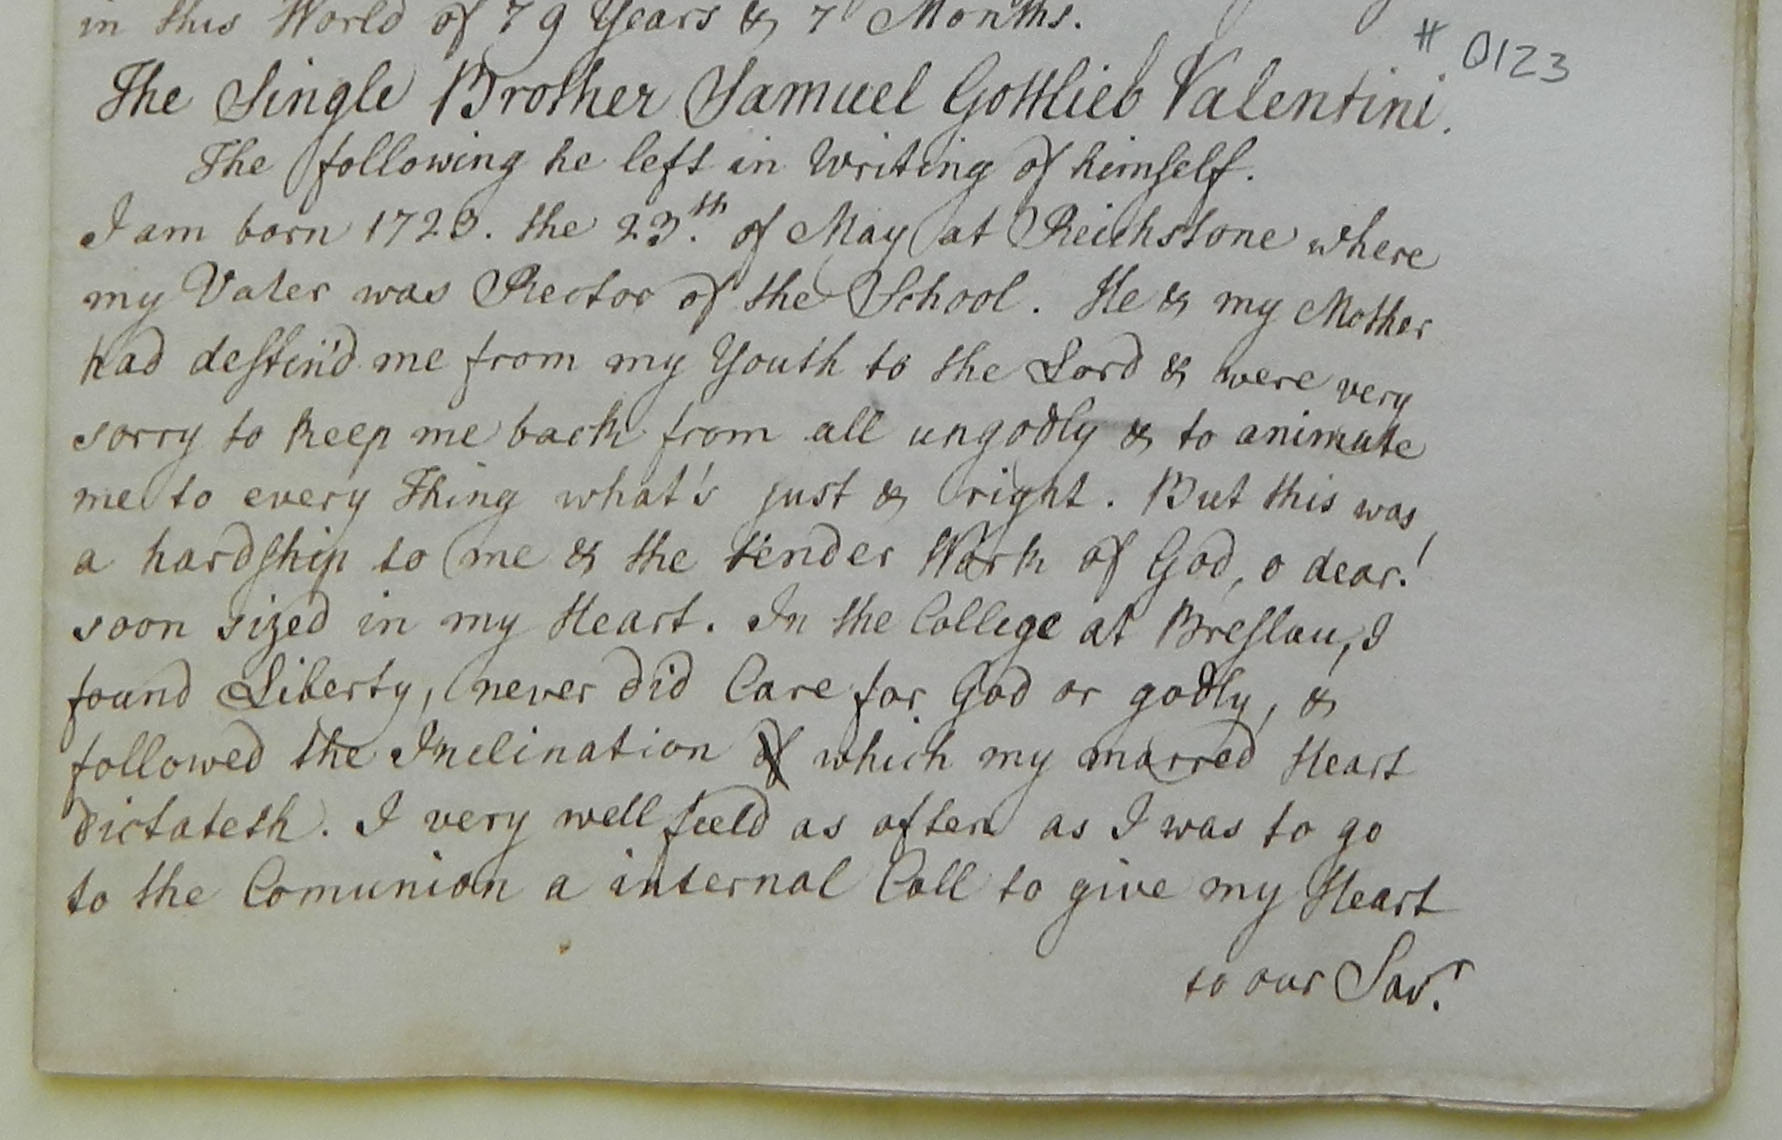 in this World of 79 Years & 7 Months.
# 0123
The Single Brother Samuel Gottlieb Valentini.
The following he left in Writing of himself.
I am born 1723. the 23th. of May at Reichstone where
my Vater was Rector of the School. He & my Mother
had destin'd me from my Youth to the Lord & were very
sorry to keep me back from all ungodly & to animate
me to every Thing what's just & right. But this was
a hardship to me & the tender Work of God, o dear!
soon sized in my Heart. In the College at Breslau, I
found Liberty, never did Care for God or godly, &
followed the Inclination of which my marred Heart
dictateth. I very well feeld as often as I was to go
to the Comunion a internal Call to give my Heart
to our Savr.